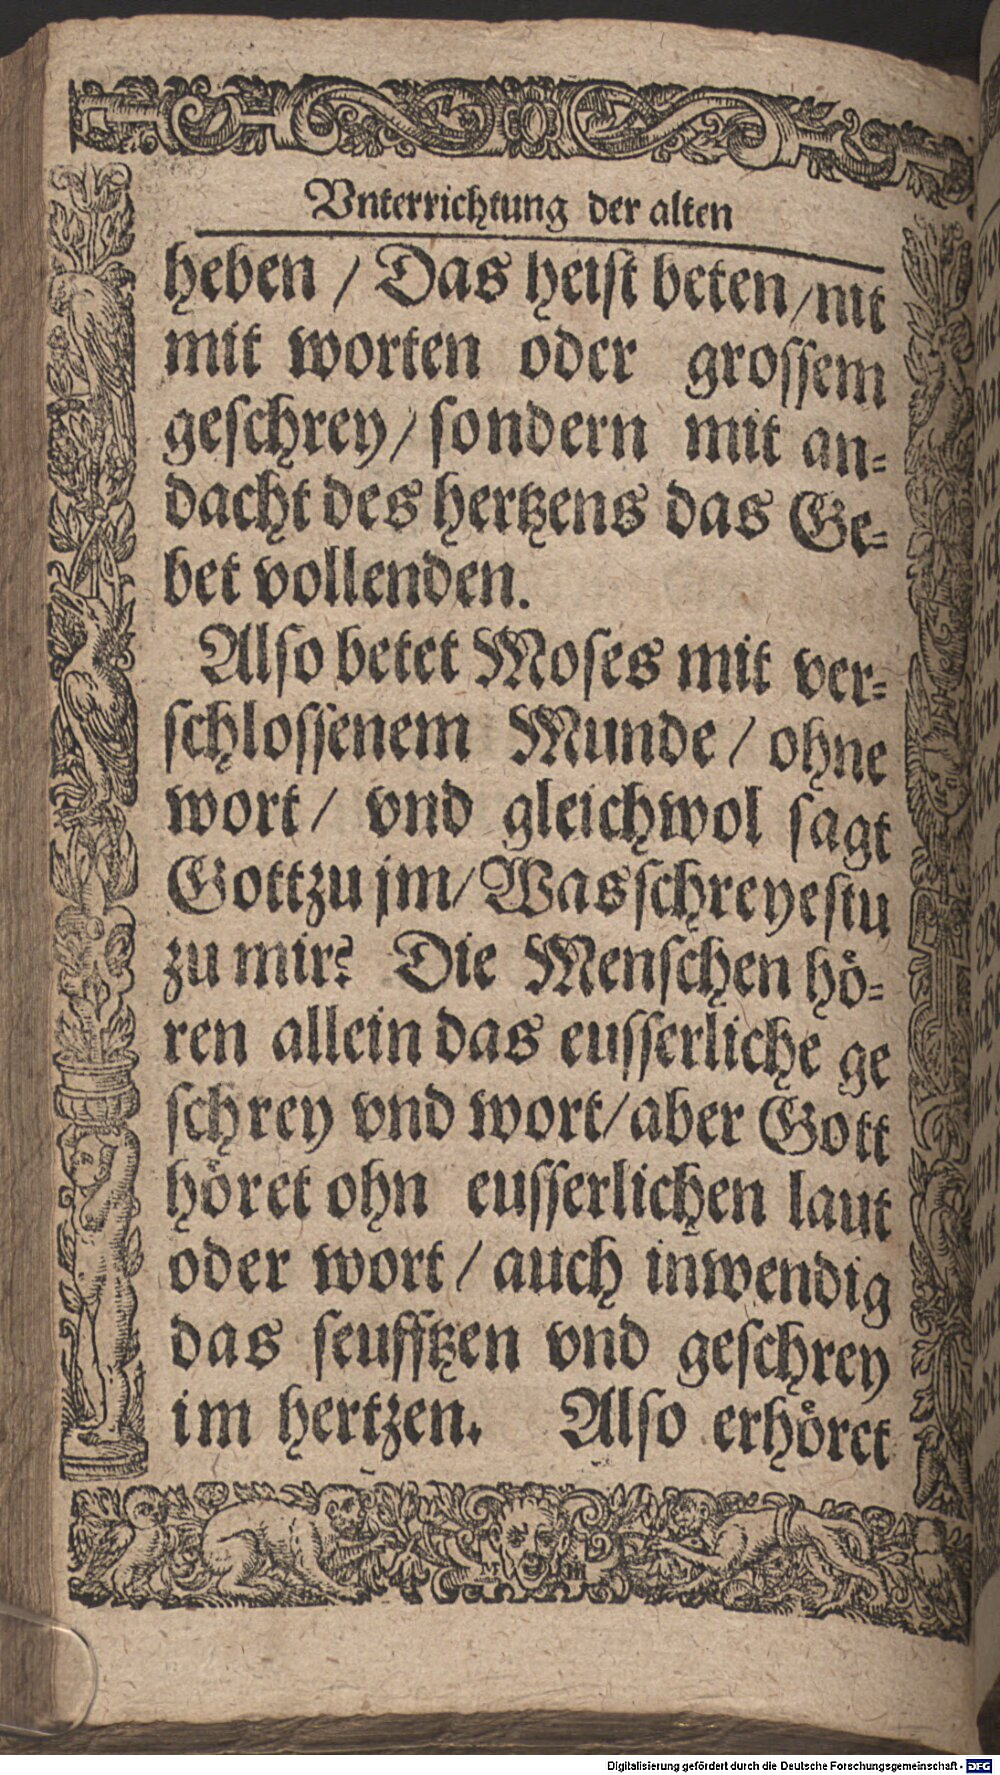 Vnterrichtung der alten
heben / Das heist beten / nit
mit worten oder grossem
geschrey / sondern mit an=
dacht des hertzens das Ge=
bet vollenden.
Also betet Moses mit ver=
schlossenem Munde / ohne
wort / vnd gleichwol sagt
Gott zu jm / Was schreyestu
zu mir? Die Menschen hö=
ren allein das eusserliche ge
schrey vnd wort / aber Gott
höret ohn eusserlichen laut
oder wort / auch inwendig
das seufftzen vnd geschrey
im hertzen. Also erhöret
Digitalisierung gefördert durch die Deutsche Forschungsgemeinschaft - DFG